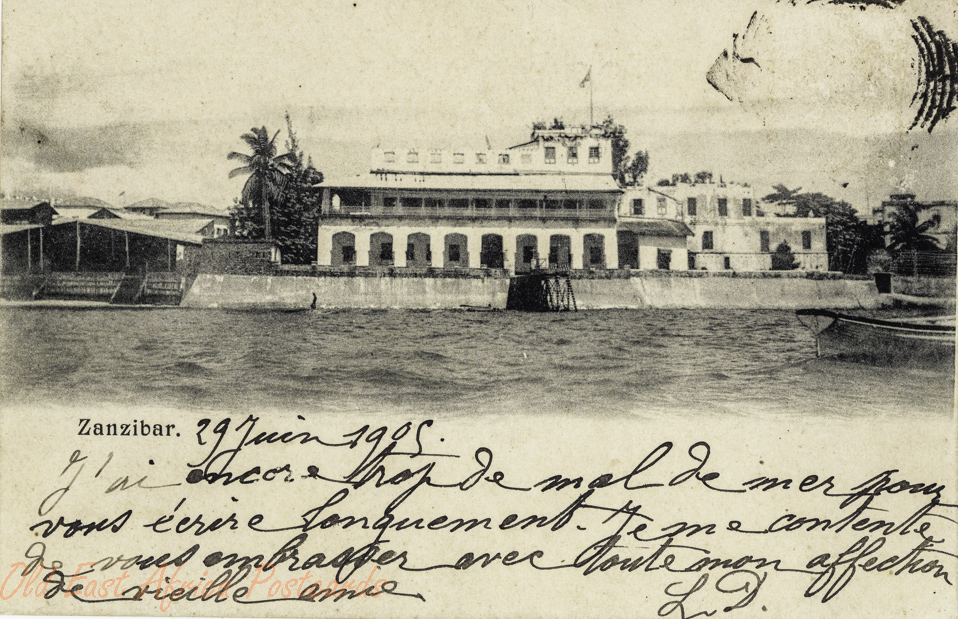 Zanzibar. 29 Juin 1905.
J'ai encore trop de mal de mer pour
vous écrire longuement. Je me contente
de vous embrasser avec toute mon affection
de vieille amie
L. D.
Old East Africa Postcards